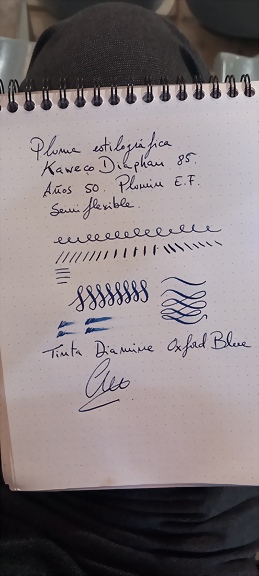 Pluma estilográfica
Kaweco Diaphan 85.
Años 50. Plumín E.F.
Semiflexible.
Tinta Diamine Oxford Blue